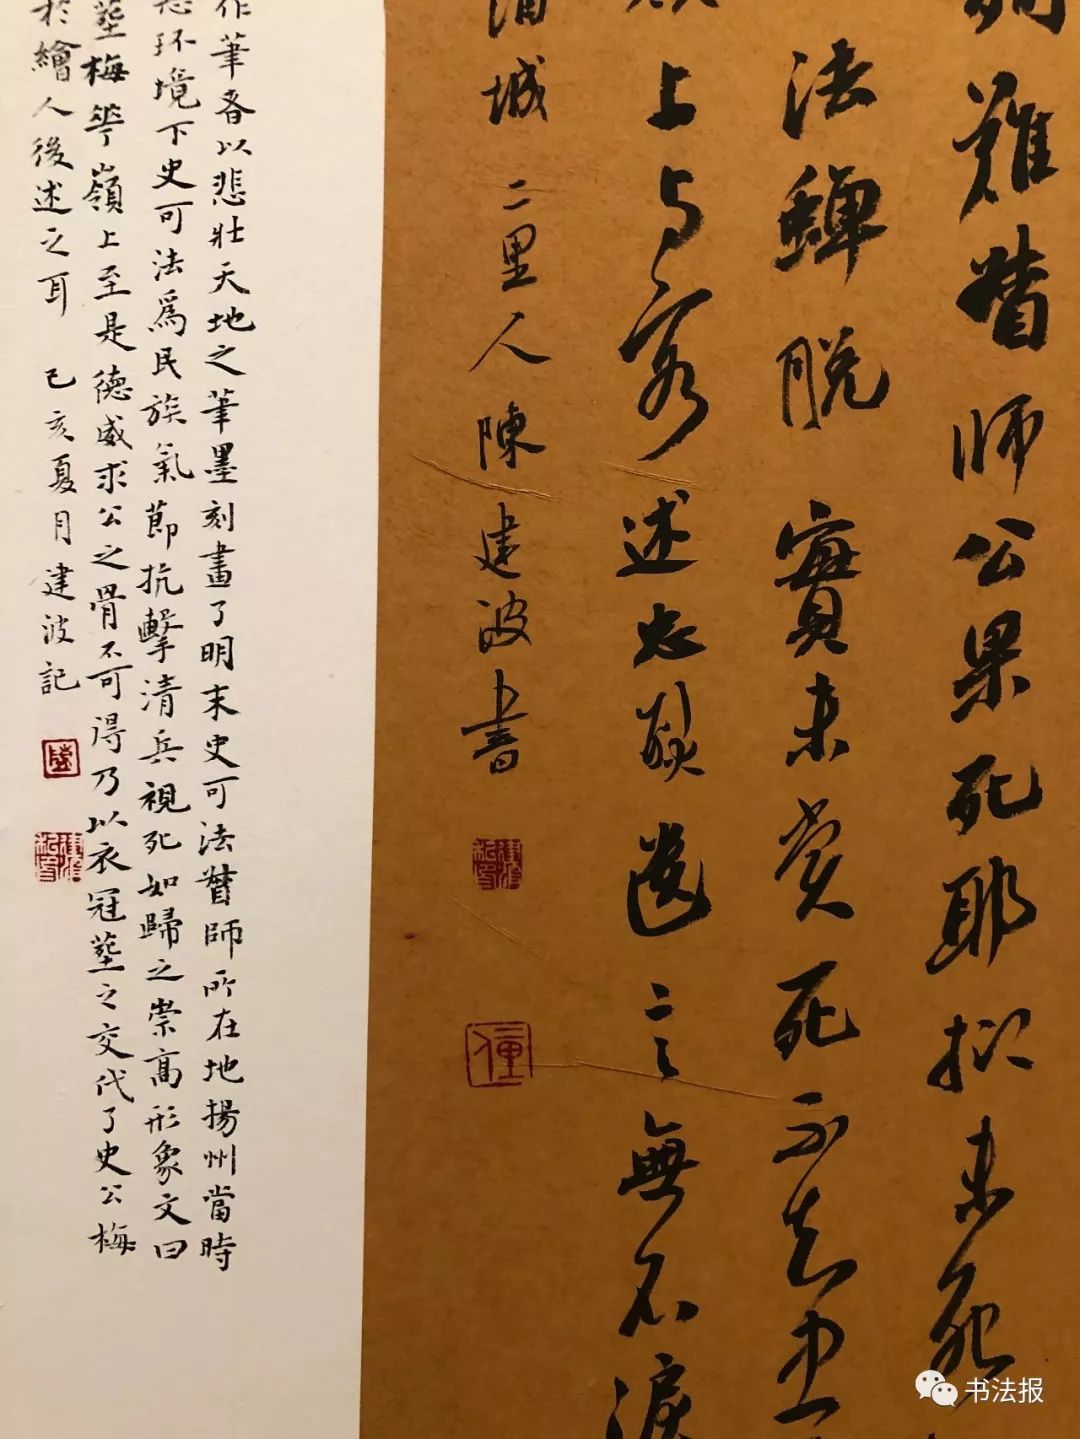 難督師公果死耶抑未死
法蟬脫實未嘗死不知忠
上與客述忠烈遺言無不淚
城二里人陳建波書
作筆者以悲壯天地之筆墨刻畫了明末史可法督師所在地揚州當時
环境下史可法爲民族氣節抗擊清兵視死如歸之崇高形象文曰
塟梅花嶺上至是德威求公之骨不可得乃以衣冠塟之交代了史公梅
於繪人後述之耳 己亥夏月建波記
书法报